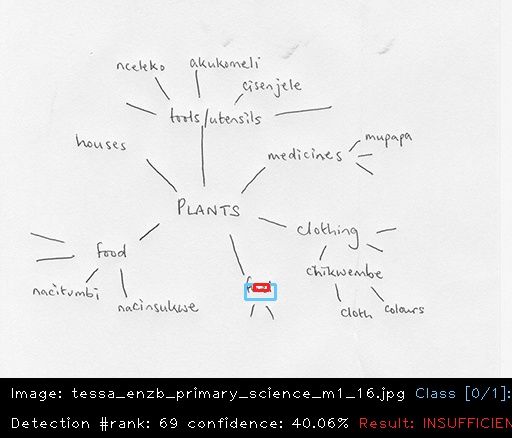 nceleko
akukomeli
cisenjele
tools/utensils
houses
medicines
mupapa
PLANTS
clothing
food
chikwembe
nacitumbi
nacinsukwe
cloth
colours
Image: tessa_enzb_primary_science_m1_16.jpg Class [0/1]:
Detection #rank: 69 confidence: 40.06% Result: INSUFFICIEN